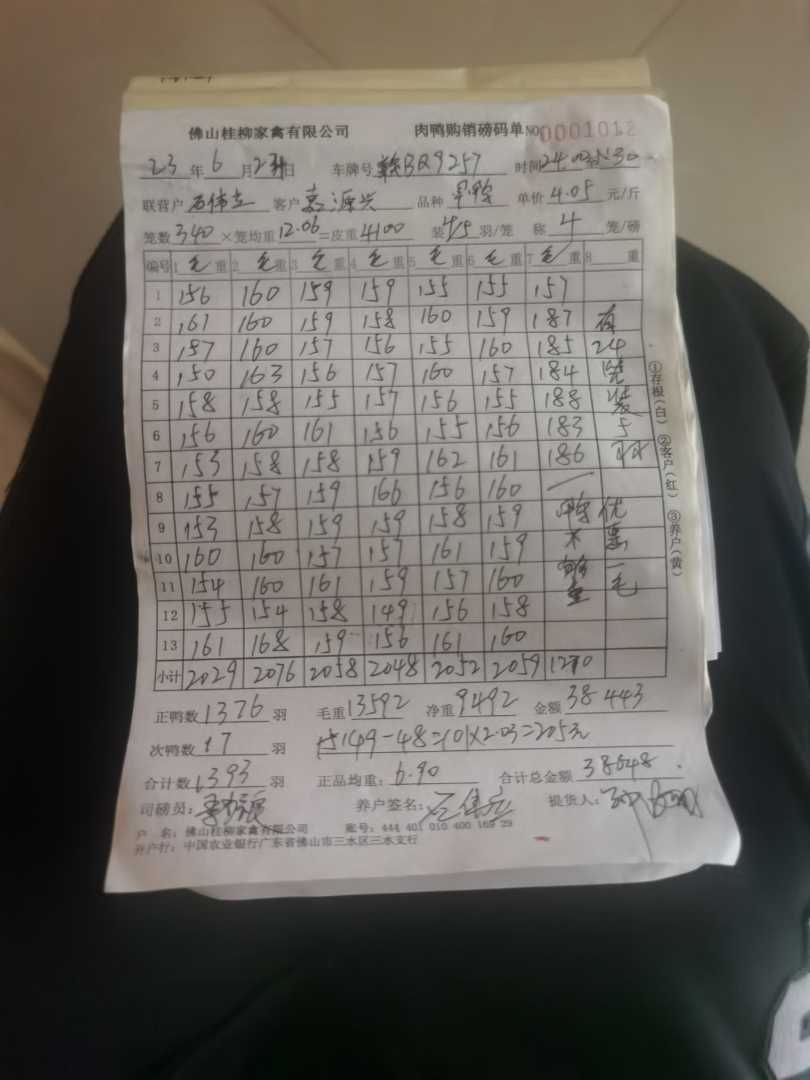 佛山桂柳家禽有限公司 肉鸭购销磅码单 NO 0001012
23 年 6 月 23 日 车牌号 BQ9257 时间 24:00
联营户 石伟立 客户 嘉源兴 品种 单价 4.05 元/斤
笼数 340 ×笼均重 12.06 =皮重 4100 装 4/5 羽/笼 称 4 笼/磅
编号 1 毛 重 2 毛 重 3 毛 重 4 毛 重 5 毛 重 6 毛 重 7 毛 重 8 重
1 156 160 159 159 155 155 157
2 161 160 159 158 160 159 187 有
3 157 160 157 156 155 160 185 24
4 150 163 156 157 160 157 184 笼
5 158 158 155 157 156 155 188 装
6 156 160 161 156 155 156 183 5
7 153 158 158 159 162 161 186 羽
8 155 157 159 166 156 160 一
9 153 158 159 159 158 159 鸭 优
10 160 160 157 157 161 159 不 惠
11 154 160 161 159 157 160 够 一
12 155 154 158 149 156 158 重 毛
13 161 168 159 156 161 160
小计 2029 2076 2058 2048 2052 2059 1270
正鸭数 1376 羽 毛重 13592 净重 9492 金额 38443
次鸭数 17 羽 149-48=101×2.03=205元
合计数 1393 羽 正品均重: 6.90 合计总金额 38648.
司磅员: 养户签名: 提货人:
户 名: 佛山桂柳家禽有限公司 账号: 444 401 010 400 169 29
开户行: 中国农业银行广东省佛山市三水区三水支行
①存根(白) ②客户(红) ③养户(黄)